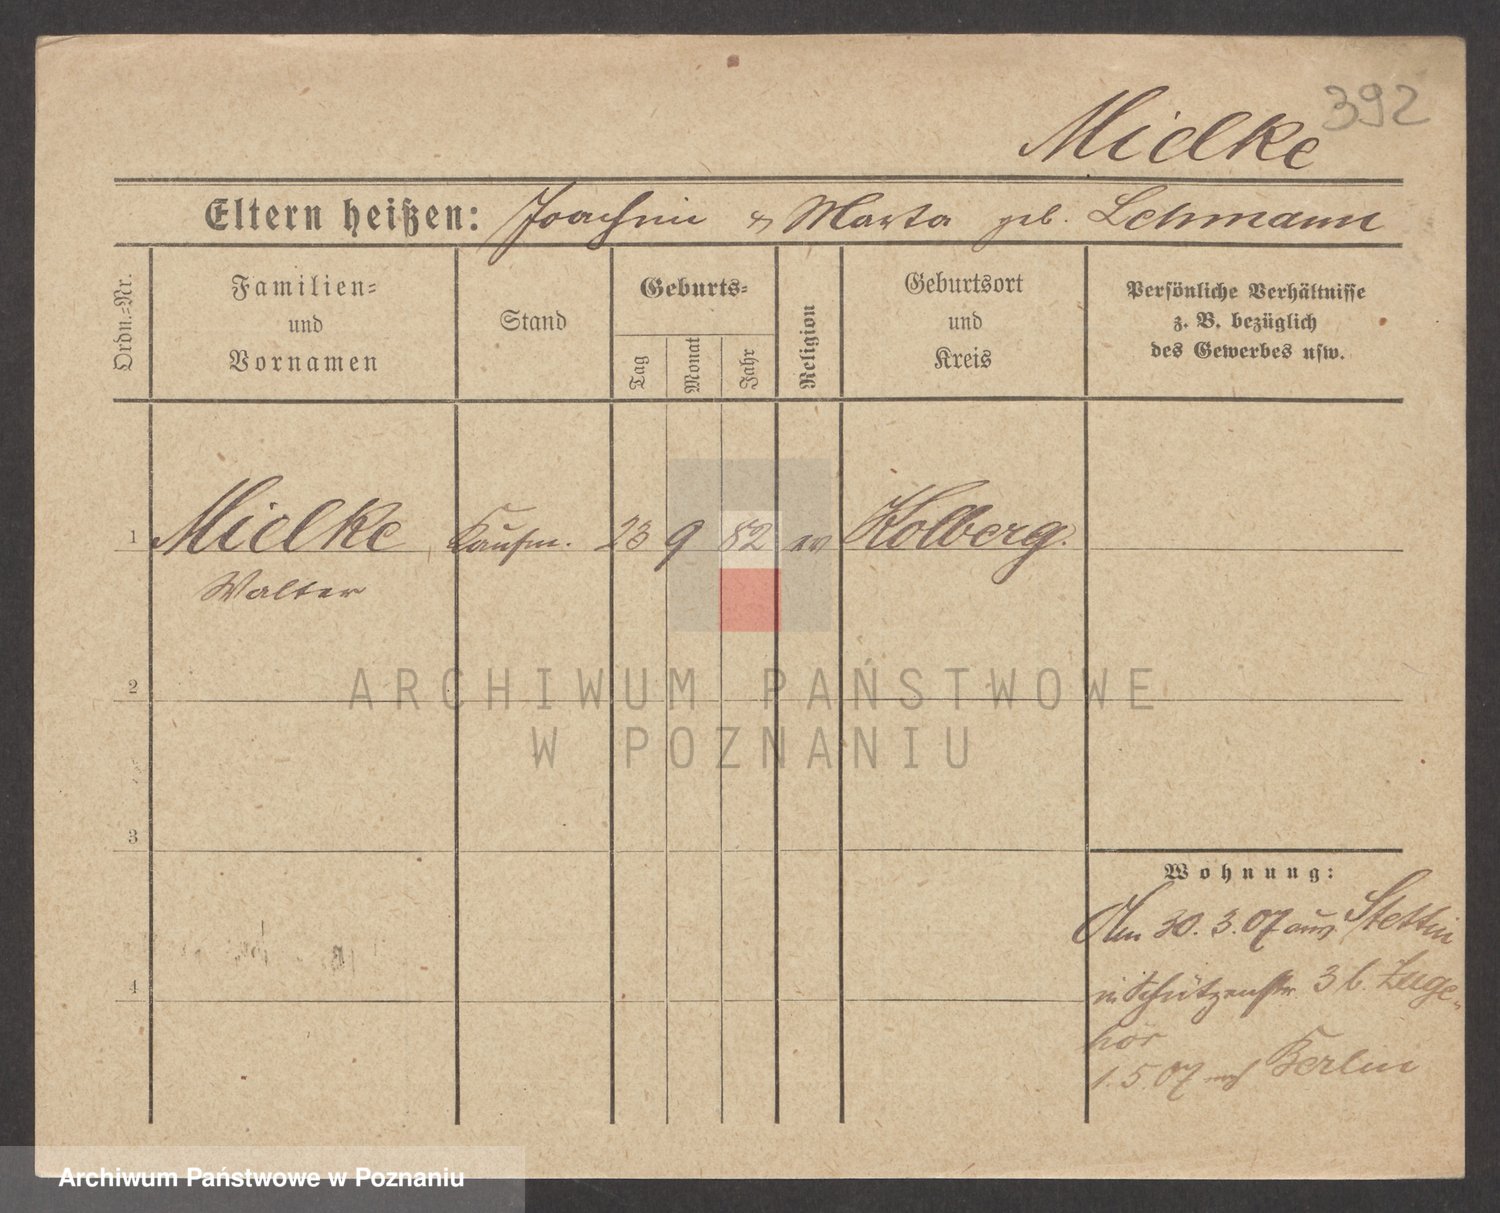 392
Mielke
Eltern heißen: Joachim & Marta geb. Lehmann
Ordn.-Nr.
Familien-
und
Vornamen
Stand
Geburts-
Tag
Monat
Jahr
Religion
Geburtsort
und
Kreis
Persönliche Verhältnisse
z. B. bezüglich
des Gewerbes usw.
1 Mielke Kaufm. 23 9 82 ev Kolberg.
Walter
2
ARCHIWUM PAŃSTWOWE
W POZNANIU
3
Wohnung:
Am 30. 3. 07 aus Stettin
in Schützenstr 3 b. Zuge-
hör
4
1. 5. 07 nach Berlin
Archiwum Państwowe w Poznaniu